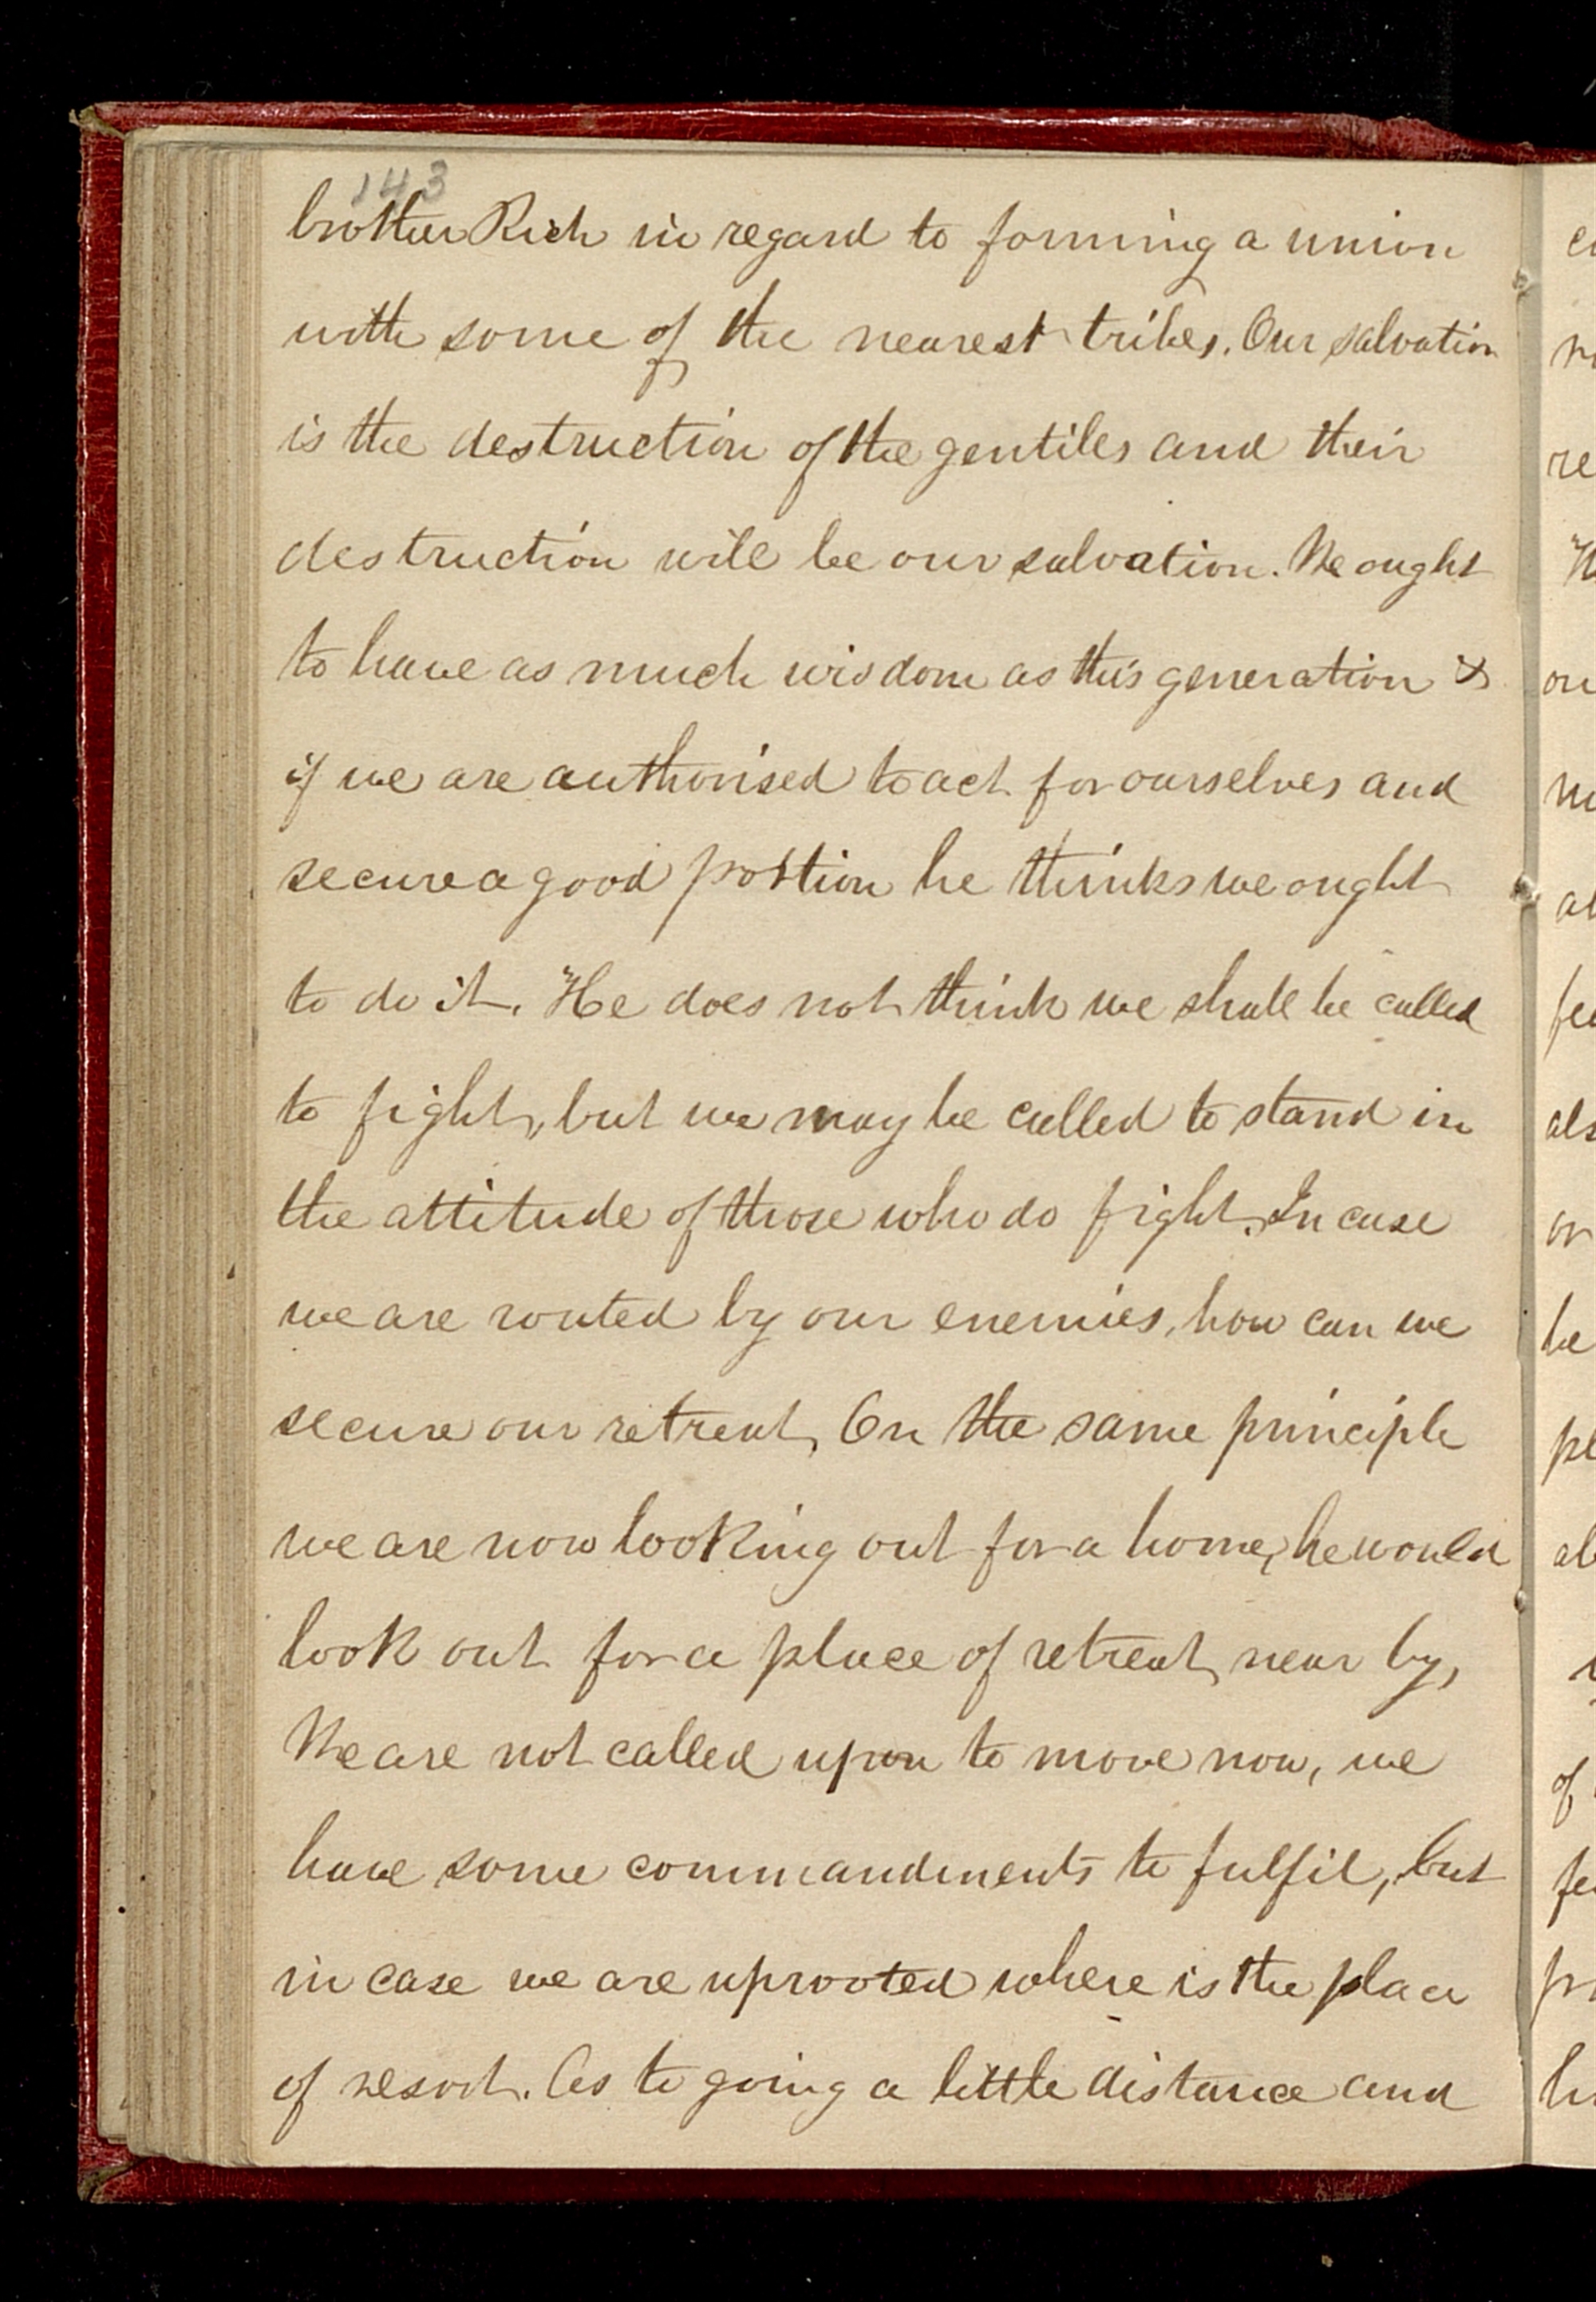 143
brother Rich in regard to forming a union
with some of the nearest tribes. Our salvation
is the destruction of the gentiles and their
destruction will be our salvation. We ought
to have as much wisdom as this generation &
if we are authorised to act for ourselves and
secure a good portion he thinks we ought
to do it. He does not think we shall be called
to fight, but we may be called to stand in
the attitude of those who do fight. In case
we are routed by our enemies, how can we
secure our retreat, On the same principle
we are now looking out for a home, he would
look out for a place of retreat near by,
We are not called upon to move now, we
have some commandments to fulfil, but
in case we are uprooted where is the place
of resort. As to going a little distance and